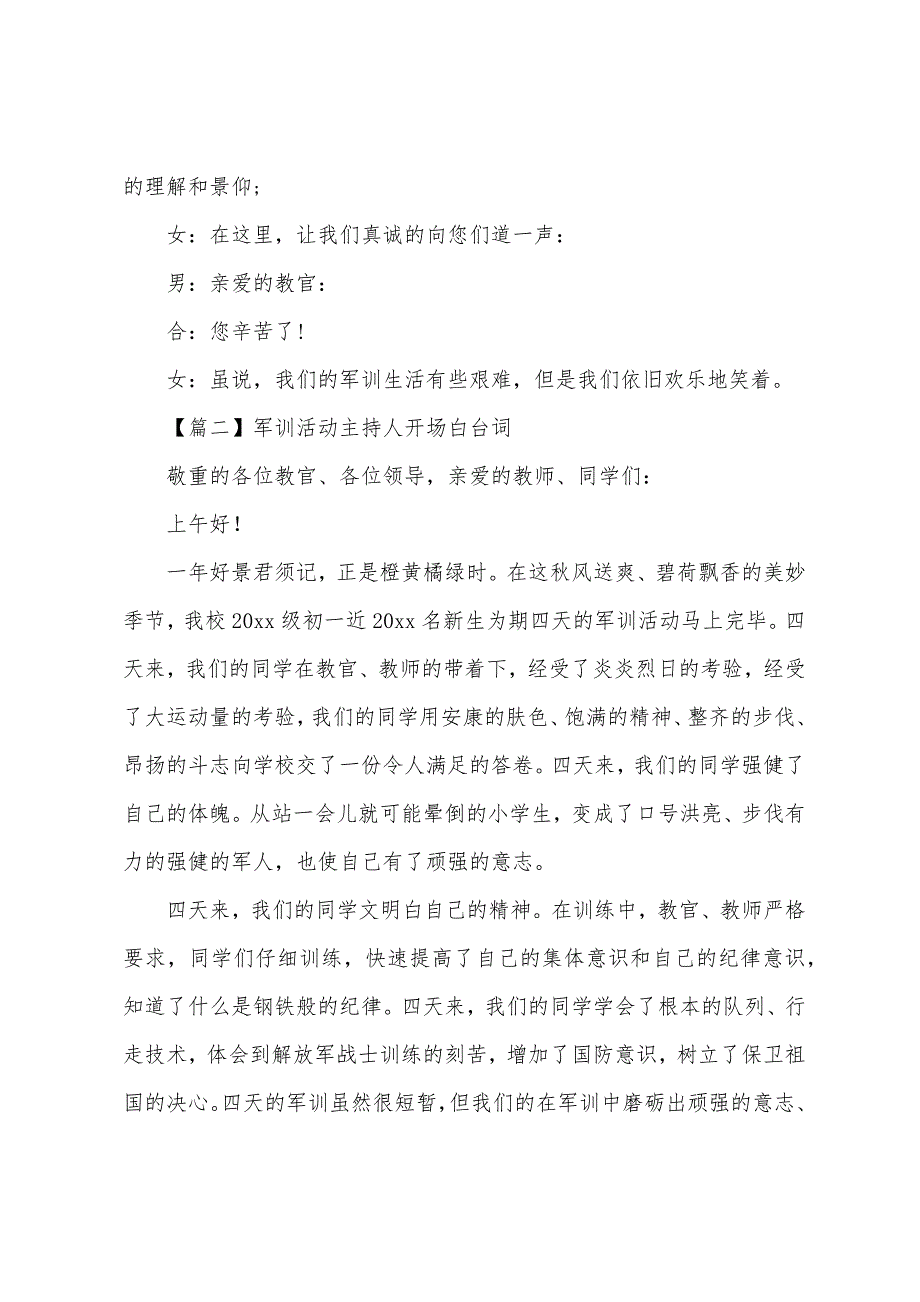 的理解和景仰;
女：在这里，让我们真诚的向您们道一声：
男：亲爱的教官：
合：您辛苦了!
女：虽说，我们的军训生活有些艰难，但是我们依旧欢乐地笑着。
【篇二】军训活动主持人开场白台词
敬重的各位教官、各位领导，亲爱的教师、同学们：
上午好！
一年好景君须记，正是橙黄橘绿时。在这秋风送爽、碧荷飘香的美妙
季节，我校 20xx 级初一近 20xx 名新生为期四天的军训活动马上完毕。四
天来，我们的同学在教官、教师的带着下，经受了炎炎烈日的考验，经受
了大运动量的考验，我们的同学用安康的肤色、饱满的精神、整齐的步伐、
昂扬的斗志向学校交了一份令人满足的答卷。四天来，我们的同学强健了
自己的体魄。从站一会儿就可能晕倒的小学生，变成了口号洪亮、步伐有
力的强健的军人，也使自己有了顽强的意志。
四天来，我们的同学文明白自己的精神。在训练中，教官、教师严格
要求，同学们仔细训练，快速提高了自己的集体意识和自己的纪律意识，
知道了什么是钢铁般的纪律。四天来，我们的同学学会了根本的队列、行
走技术，体会到解放军战士训练的刻苦，增加了国防意识，树立了保卫祖
国的决心。四天的军训虽然很短暂，但我们的在军训中磨砺出顽强的意志、